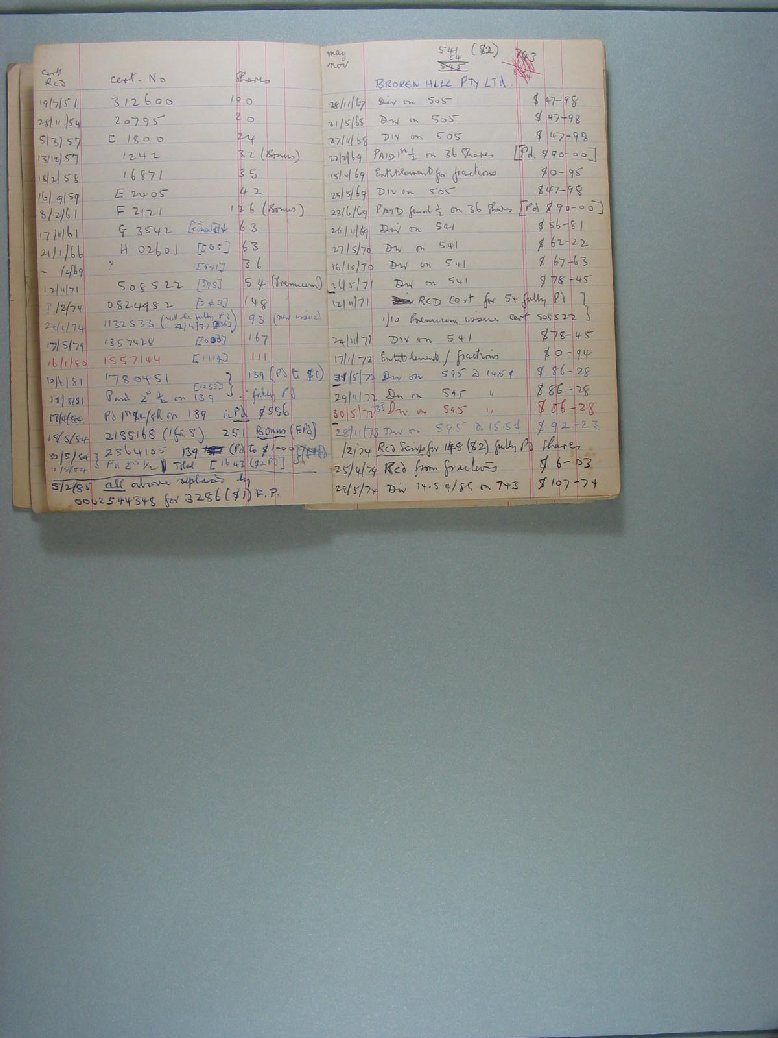 Cert Rec'd Cert. No
19/7/51 312600 100
23/11/54 20795 20
5/3/57 C 1800 24
1242 32 (Bonus)
18/2/58 16871 35
16/9/59 E 2405 42
8/2/61 F 2121 126 (Bonus)
17/11/61 G 3542 63
21/1/66 H 02601 [505] 63
" [541] 36
12/11/71 508522 [595] 54 (Premium)
/2/74 0824982 [743] 148
1132533 93
17/5/79 1357428 167
16/1/80 1557144 111
1780451 139 (Pd to $1)
Paid 2nd ½ on 139 - fully Pd
Pd on 139 ie Pd $556
18/5/84 2185168 (1 for 5) 251 Bonus (FPd)
2564105 139 (Pd to $1.00)
5/2/85 all above replaced by
0062544348 for 3286 ($1) F.P.
May
Nov
541 ($2) 743
54
595
BROKEN HILL PTY LTD.
28/11/67 Div on 505 $47-98
21/5/68 Div on 505 $47-98
27/11/68 Div on 505 $47-98
Paid 1st ½ on 36 Shares [Pd $90-00]
Entitlement for fractions $0-95
25/5/69 Div on 505 $47-98
29/6/69 Paid final ½ on 36 Shares [Pd $90-00]
26/11/69 Div on 541 $56-81
27/5/70 Div on 541 $62-22
16/10/70 Div on 541 $67-63
31/5/71 Div on 541 $78-45
12/11/71 Rcd cost for 54 fully Pd
1/10 Premium issue cert 508522
24/11/71 Div on 541 $78-45
17/1/72 Entitlement/fractions $0-94
Div on 595 @ 14.5¢ $86-28
29/11/72 Div on 595 " $86-28
30/5/73 Div on 595 " $86-28
28/11/73 Div on 595 @ 15.5¢ $92-23
/2/74 Rcd Scrip for 148 ($2) fully Pd Shares
25/4/74 Rcd from fractions $6-03
29/5/74 Div 14.5¢/sh on 743 $107-74